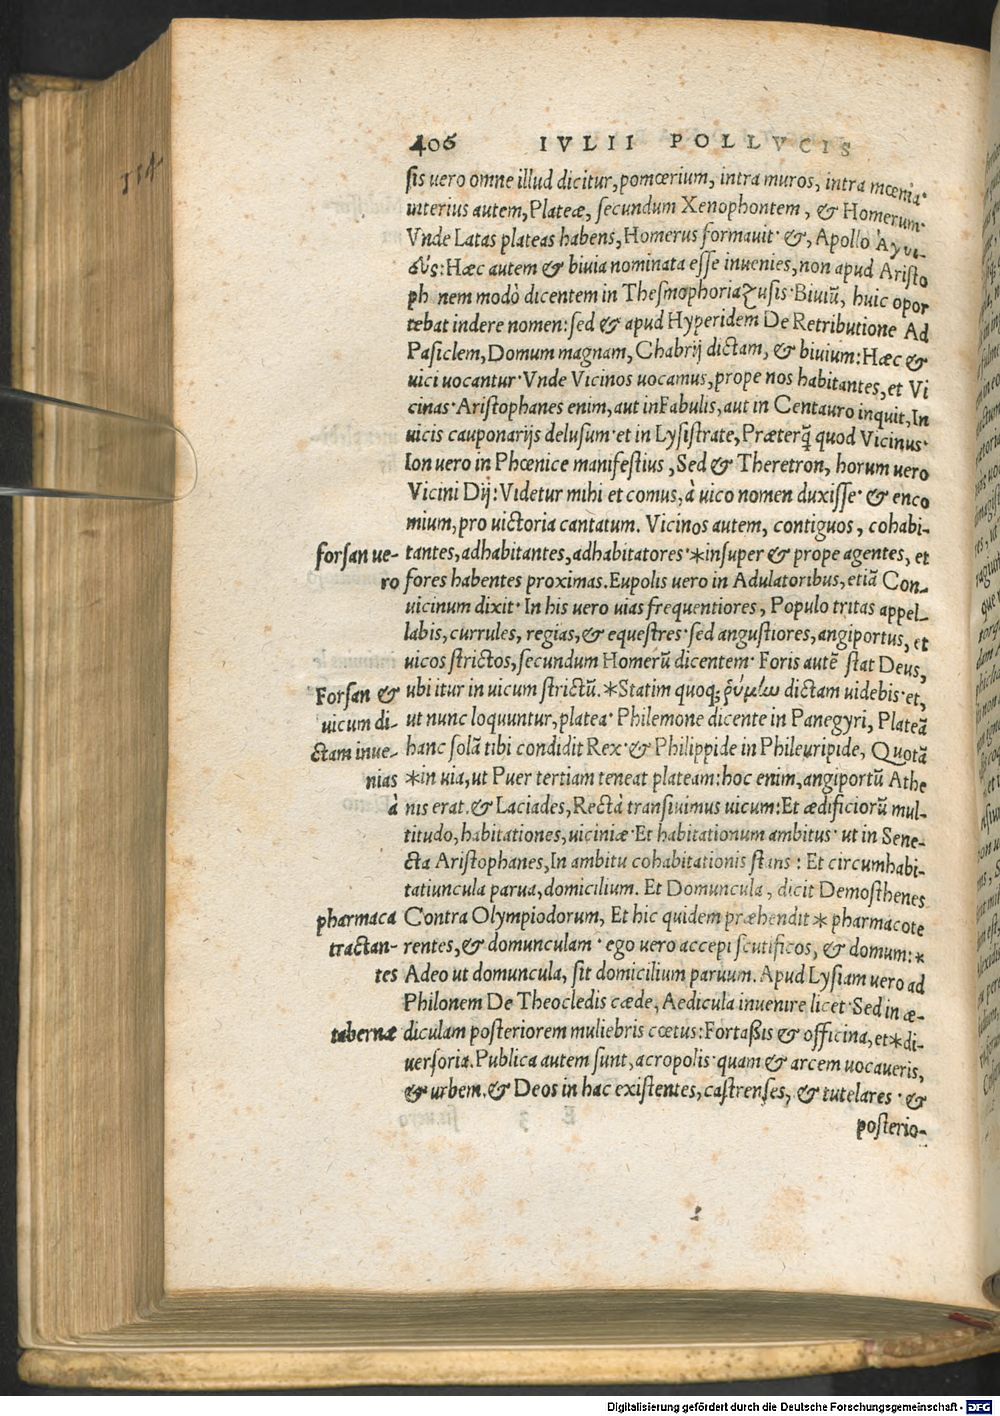 406 IVLII POLLVCIS
sis vero omne illud dicitur, pomœrium, intra muros, intra mœnia·
interius autem, Plateæ, secundum Xenophontem, & Homerum·
Vnde Latas plateas habens, Homerus formauit· &, Apollo Ἀγυι-
δύς: Hæc autem & biuia nominata esse inuenies, non apud Aristo
ph nem modò dicentem in Thesmophoriazusis· Biuiũ, huic opor
tebat indere nomen: sed & apud Hyperidem De Retributione Ad
Pasiclem, Domum magnam, Chabrij dictam, & biuium: Hæc &
uici uocantur· Vnde Vicinos uocamus, prope nos habitantes, et Vi
cinas· Aristophanes enim, aut in Fabulis, aut in Centauro inquit, In
uicis cauponarijs delusum· et in Lysistrate, Præterq̃ quod Vicinus·
Ion uero in Phœnice manifestius, Sed & Theretron, horum uero
Vicini Dij: Videtur mihi et comus, à uico nomen duxisse· & enco
mium, pro uictoria cantatum. Vicinos autem, contiguos, cohabi-
forsan ue- tantes, adhabitantes, adhabitatores· *insuper & prope agentes, et
ro fores habentes proximas. Eupolis uero in Adulatoribus, etiã Con-
uicinum dixit· In his uero uias frequentiores, Populo tritas appel-
labis, currules, regias, & equestres· sed angustiores, angiportus, et
uicos strictos, secundum Homerũ dicentem· Foris autẽ stat Deus,
Forsan & ubi itur in uicum strictũ. *Statim quoq; ῥύμλω dictam uidebis· et,
uicum di- ut nunc loquuntur, platea· Philemone dicente in Panegyri, Plateã
ctam inue- hanc solã tibi condidit Rex· & Philippide in Phileuripide, Quotã
nias *in uia, ut Puer tertiam teneat plateam: hoc enim, angiportũ Athe
à nis erat. & Laciades, Rectà transiuimus uicum: Et ædificiorũ mul-
titudo, habitationes, uiciniæ· Et habitationum ambitus· ut in Sene-
cta Aristophanes, In ambitu cohabitationis stans: Et circumhabi-
tatiuncula parua, domicilium. Et Domuncula, dicit Demosthenes
pharmaca Contra Olympiodorum, Et hic quidem præhendit * pharmacote
tractan- rentes, & domunculam· ego uero accepi scutificos, & domum: *
tes Adeo ut domuncula, sit domicilium paruum. Apud Lysiam uero ad
Philonem De Theocledis cæde, Aedicula inuenire licet· Sed in æ-
tabernæ diculam posteriorem muliebris cœtus: Fortaßis & officina, et * di-
uersoria. Publica autem sunt, acropolis· quam & arcem uocaueris,
& urbem. & Deos in hac existentes, castrenses, & tutelares· &
posterio-
Digitalisierung gefördert durch die Deutsche Forschungsgemeinschaft - DFG